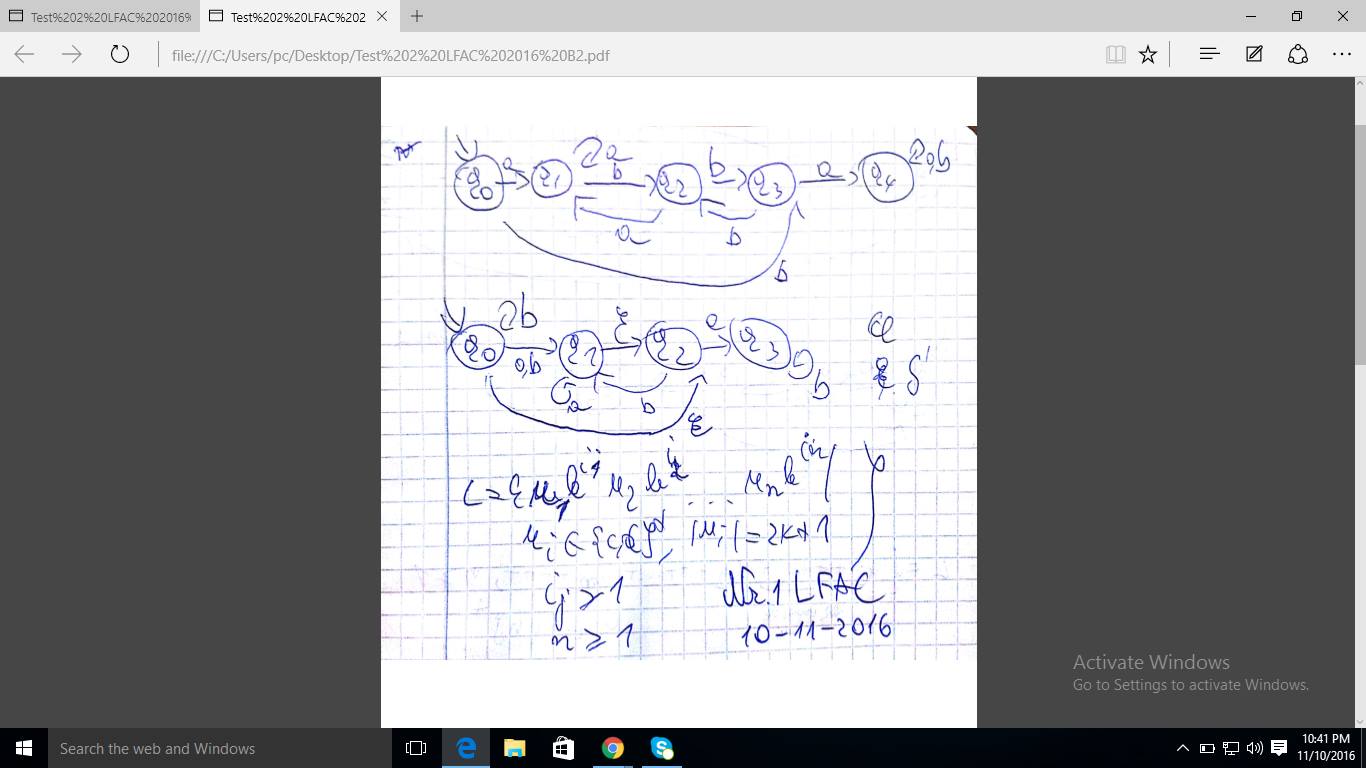 Test%202%20LFAC%202016%
Test%202%20LFAC%202
file:///C:/Users/pc/Desktop/Test%202%20LFAC%202016%20B2.pdf
a a b b a a,b
q0 q1 q2 q3 q4
a b
b
b ε a
q0 q1 q2 q3
a,b a b b
ε
L={
|=2k+1
ij ≥ 1 Nr.1 LFAC
n ≥ 1 10-11-2016
Activate Windows
Go to Settings to activate Windows.
Search the web and Windows
10:41 PM
11/10/2016